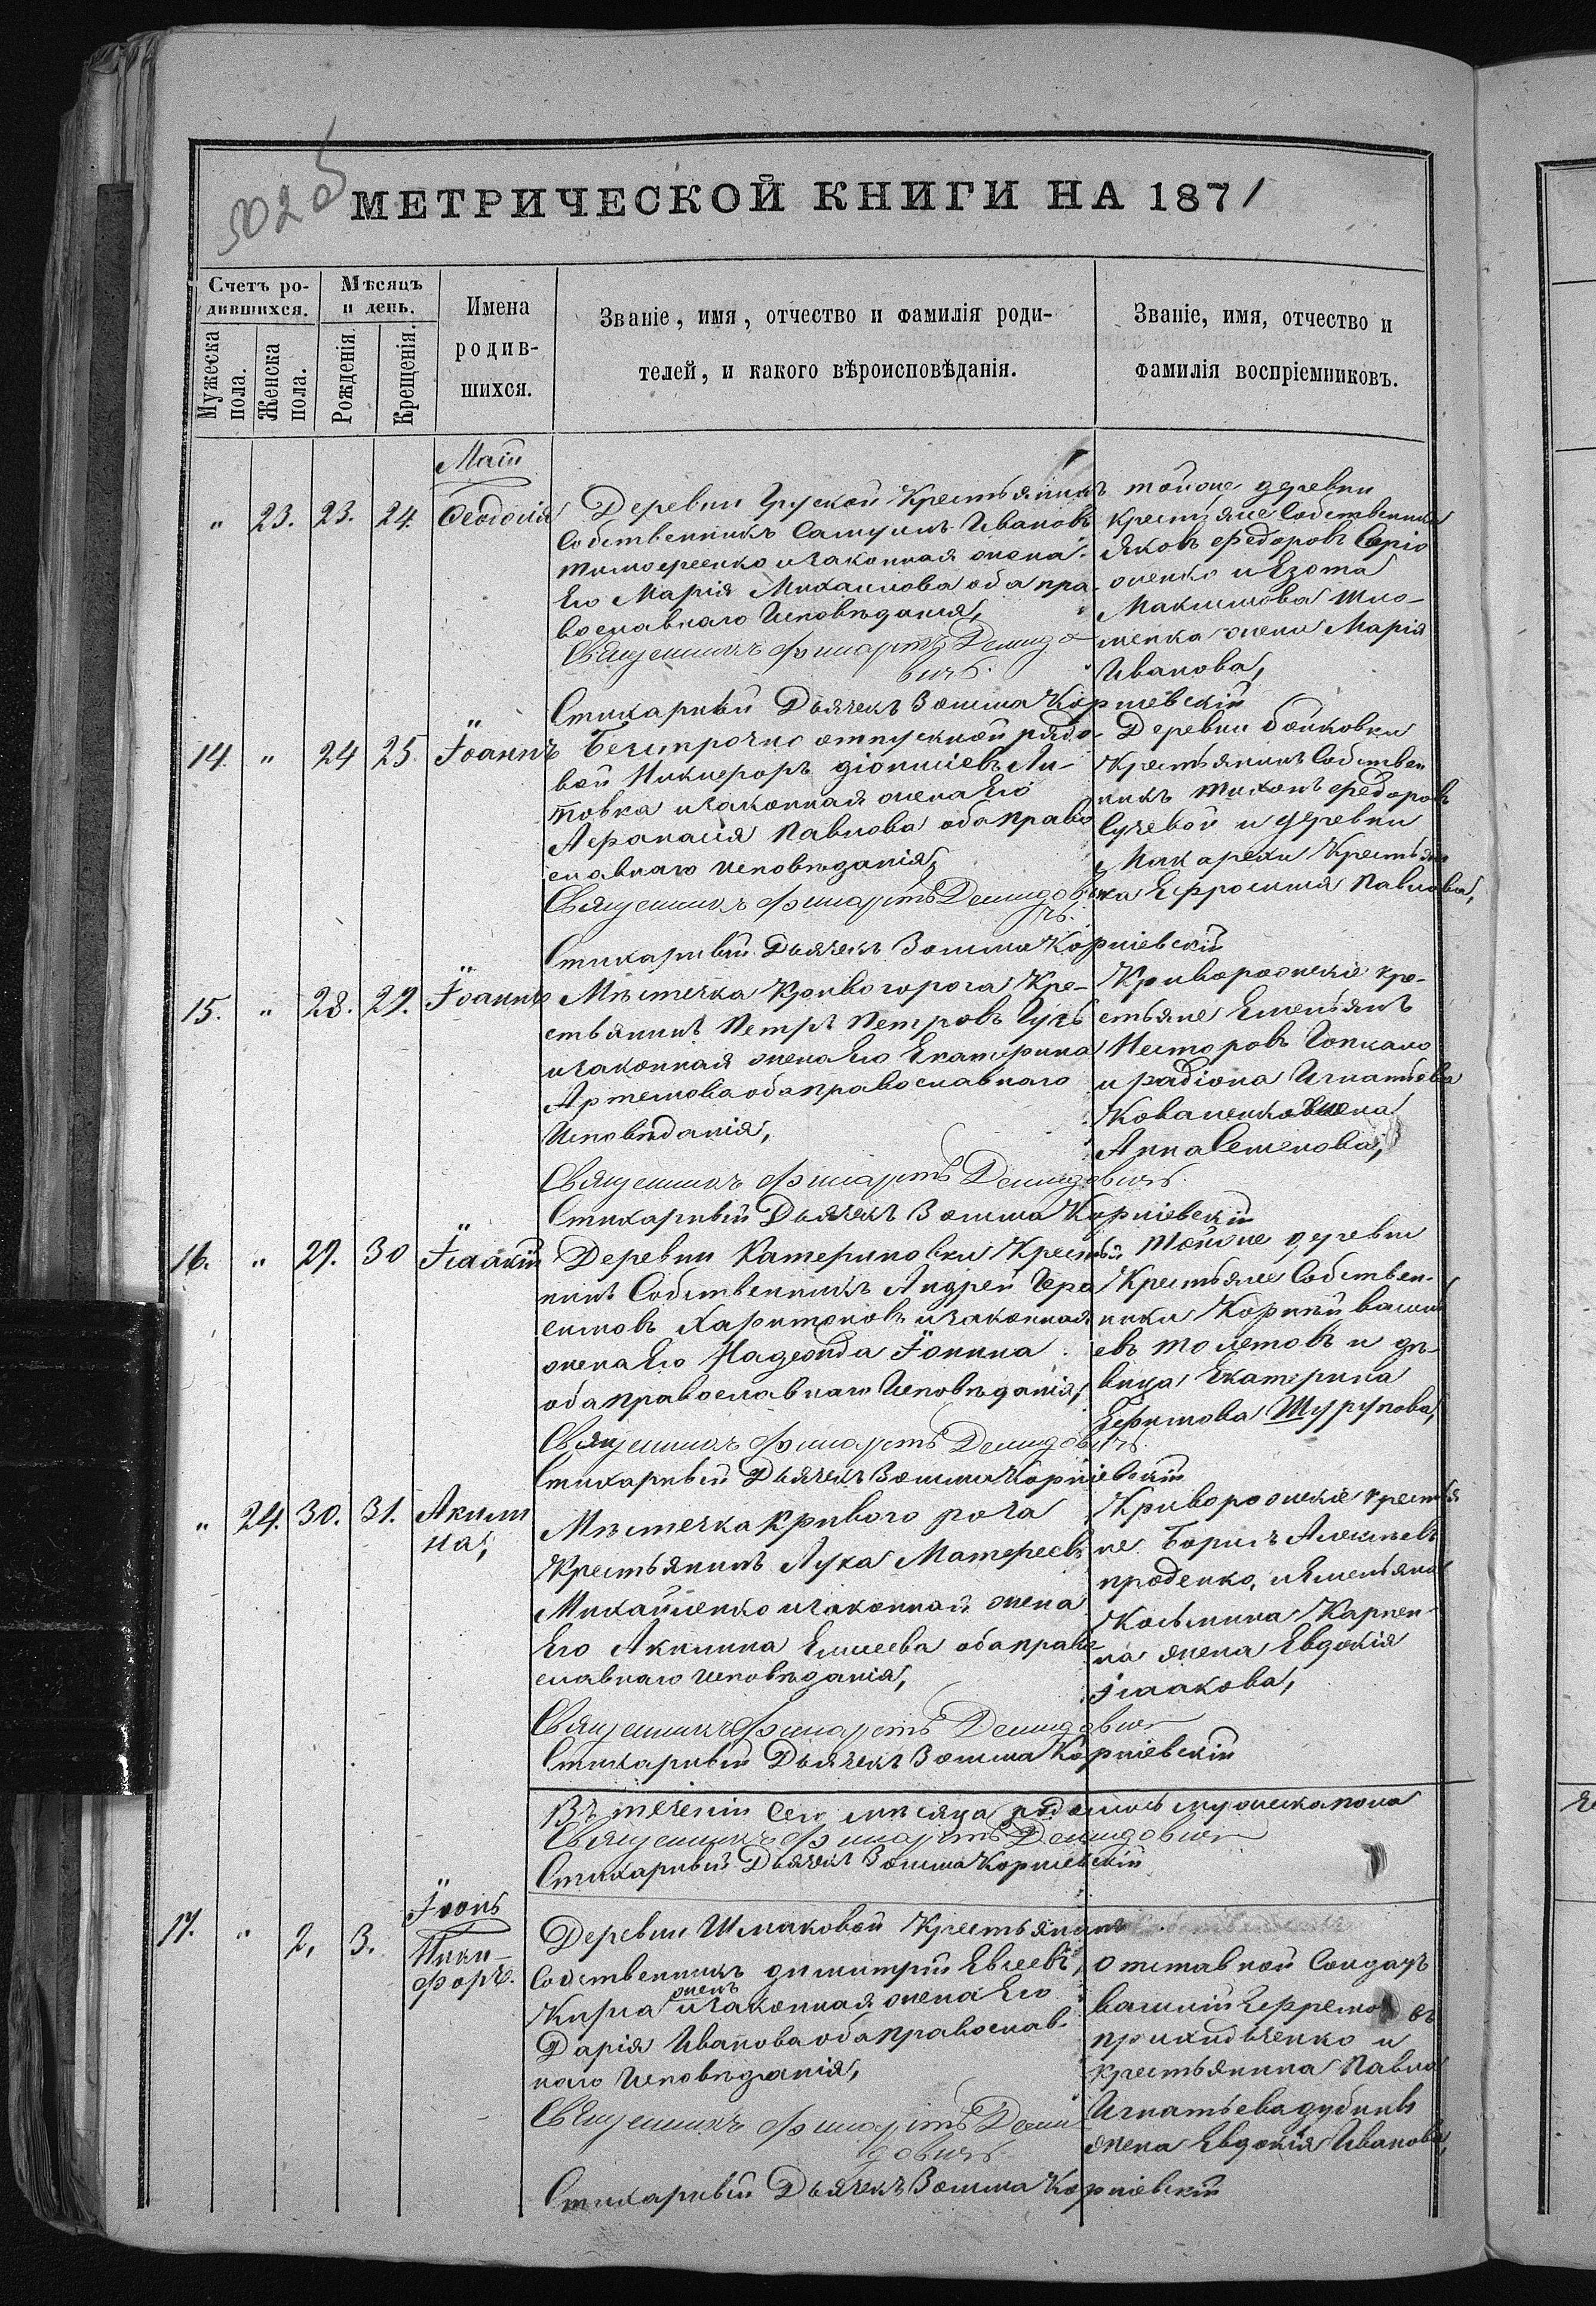 302 об
МЕТРИЧЕСКОЙ КНИГИ НА 1871
Счетъ ро-
дившихся.
Мужеска пола.
Женска пола.
Мѣсяцъ
и день.
Рожденія.
Крещенія.
Имена
родив-
шихся.
Званіе, имя, отчество и фамилія роди-
телей, и какого вѣроисповѣданія.
Званіе, имя, отчество и
фамилія воспріемниковъ.
Май
" 23. 23. 24. Ѳеодосія
Деревни Крестьянинъ
Собственникъ Самуилъ Ивановъ
Тимоѳеенко и законная жена
Его Марія Михаилова оба пра-
вославнаго Исповѣданія,
Священникъ Филаретъ Демидо-
вичъ.
Стихарный Дьячекъ Зосима Корніевскій
тойже деревни
крестьяне Собственники
Яковъ Федоровъ
и Изота
Максимова
жена Марія
Иванова,
14. " 24 25 Іоаннъ
Безсрочно отпускной рядо-
вой Никифоръ діонисіевъ Ли-
товка и законная жена Его
Афанасія Павлова оба право
славнаго исповѣданія,
Священникъ Филаретъ Демидов
чъ.
Стихарный Дьячекъ Зосима Корніевскій
Деревни бойковки
Крестьянинъ Собствен
никъ тихонъ федоровъ
Сучевой и деревни
Макарехи Крестьян
ка Ефросинія Павлова,
15. " 28. 29. Іоаннъ
Мѣстечка Кривогорога Кре-
стьянинъ Петръ Петровъ Гузь
и законная жена Его Екатерина
Артемова оба православнаго
Исповѣданія,
Священникъ Филаретъ Демидовичъ.
Стихарный Дьячекъ Зосима Корніевскій
Криворожскіе кре-
стьяне Емельянъ
Несторовъ Гопкало
и радіона Игнатьева
Коваленкова жена
Анна Семенова,
16. " 29. 30 Ісаакій
Деревни Катериновки Крестья
нинъ Собственникъ Андрей Гера
симовъ Харитоновъ и законная
жена Его Надежда Іонина
оба православнаго Исповѣданія,
Священникъ Филаретъ Демидовичъ.
Стихарный Дьячекъ Зосима Корніевскій
Тойже деревни
Крестьяне Собствен-
ники Корній васил
евъ толстовъ и дѣ-
вица Екатерина
Ефимова Шурупова,
" 24. 30. 31. Акили
на,
Мѣстечка Кривого рога
Крестьянинъ Лука Матфеевъ
Михайленко и законная жена
Его Акилина Елисеева оба право
славнаго исповѣданія,
Священникъ Филаретъ Демидович
Стихарный Дьячекъ Зосима Корніевскій
Криворожскіе крестья
не Борисъ Алексѣевъ
проденко, и Емельяна
Косьмина Карпен-
ка жена Евдокія
Ісаакова,
Въ теченіи сего мѣсяца родилось мужеска пола
Священникъ Филаретъ Демидович
Стихарный Дьячекъ Зосима Корніевскій
Іюнь
17. " 2. 3. Ники-
форъ.
Деревни Шмаковой Крестьянинъ
Собственникъ димитрій Евсеевъ,
Кирпа и законная жена Его
Дарія Иванова оба православ-
наго Исповѣданія,
Священникъ Филаретъ Деми-
довичъ.
Стихарный Дьячекъ Зосима Корніевскій
отставной Солдатъ
василій Ефремовъ
приходченко и
крестьянина Павла
Игнатьева
жена Евдокія Иванова,